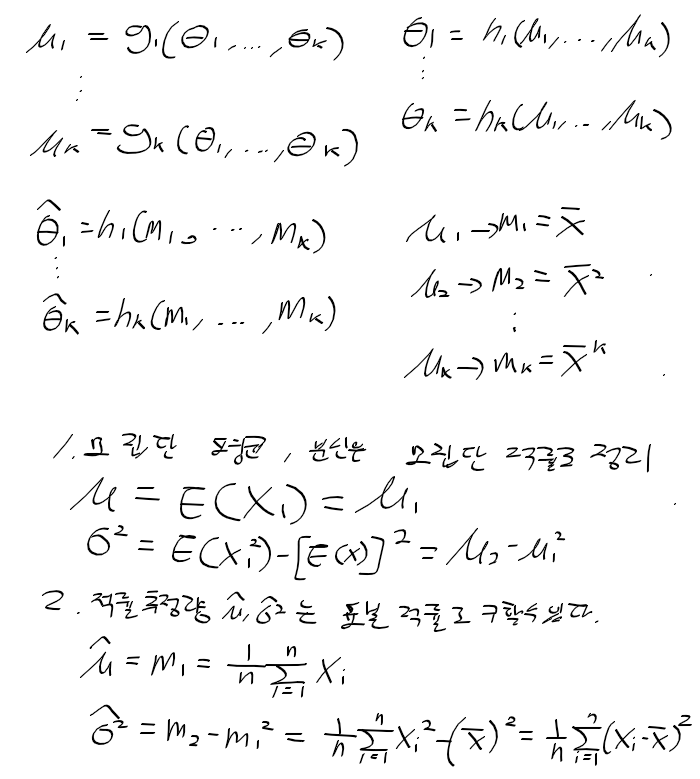 μ₁ = g₁(θ₁, ..., θₖ)  θ₁ = h₁(μ₁, ..., μₖ)
⋮  ⋮
μₖ = gₖ(θ₁, ..., θₖ)  θₖ = hₖ(μ₁, ..., μₖ)
θ̂₁ = h₁(m₁, ..., mₖ)  μ₁ → m₁ = X̄
⋮  μ₂ → m₂ = X̄²
θ̂ₖ = hₖ(m₁, ..., mₖ)  ⋮
μₖ → mₖ = X̄ᵏ
1. 모집단 평균, 분산을 모집단 적률로 정리
μ = E(X₁) = μ₁
σ² = E(X₁²) - [E(X)]² = μ₂ - μ₁²
2. 적률 추정량 μ̂, σ̂²는 표본 적률로 구할수 있다.
μ̂ = m₁ = 1/n Σᵢ₌₁ⁿ Xᵢ
σ̂² = m₂ - m₁² = 1/n Σᵢ₌₁ⁿ Xᵢ² - (X̄)² = 1/n Σᵢ₌₁ⁿ (Xᵢ - X̄)²